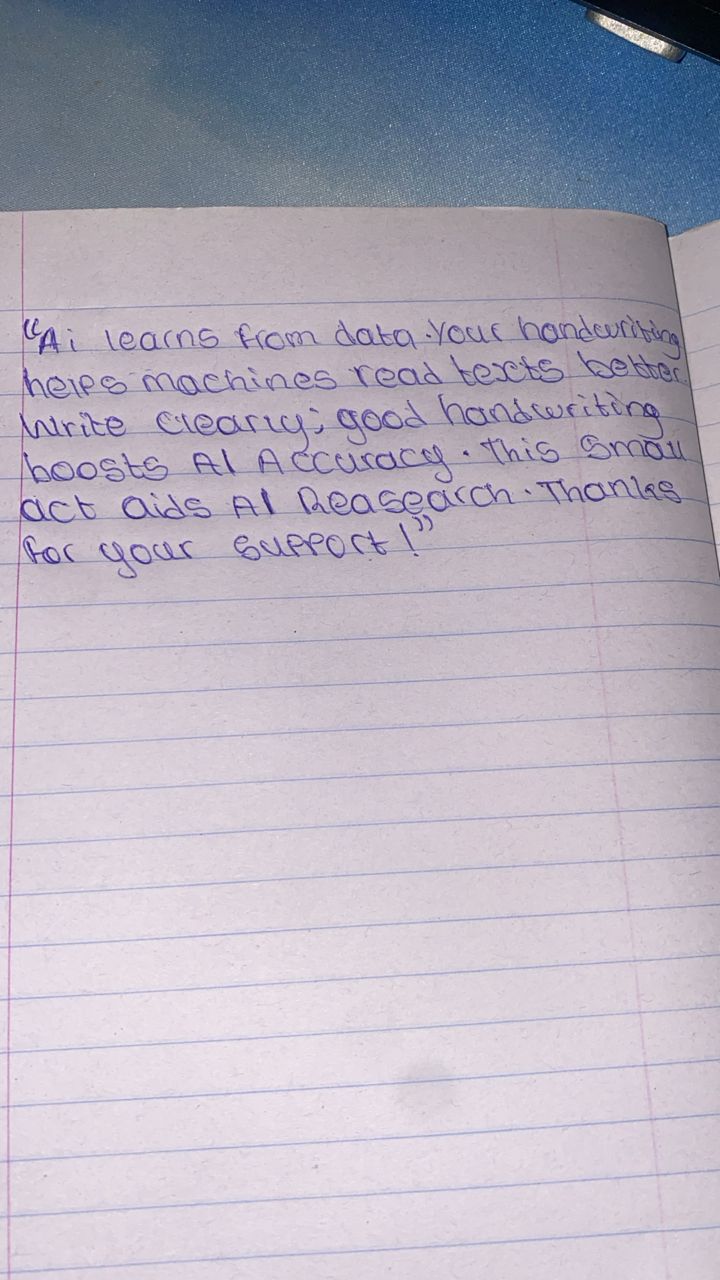 "Ai learns from data. Your handwriting
helps machines read texts better.
Write clearly; good handwriting
boosts AI Accuracy. This Small
act aids AI Reasearch. Thanks
for your support!"